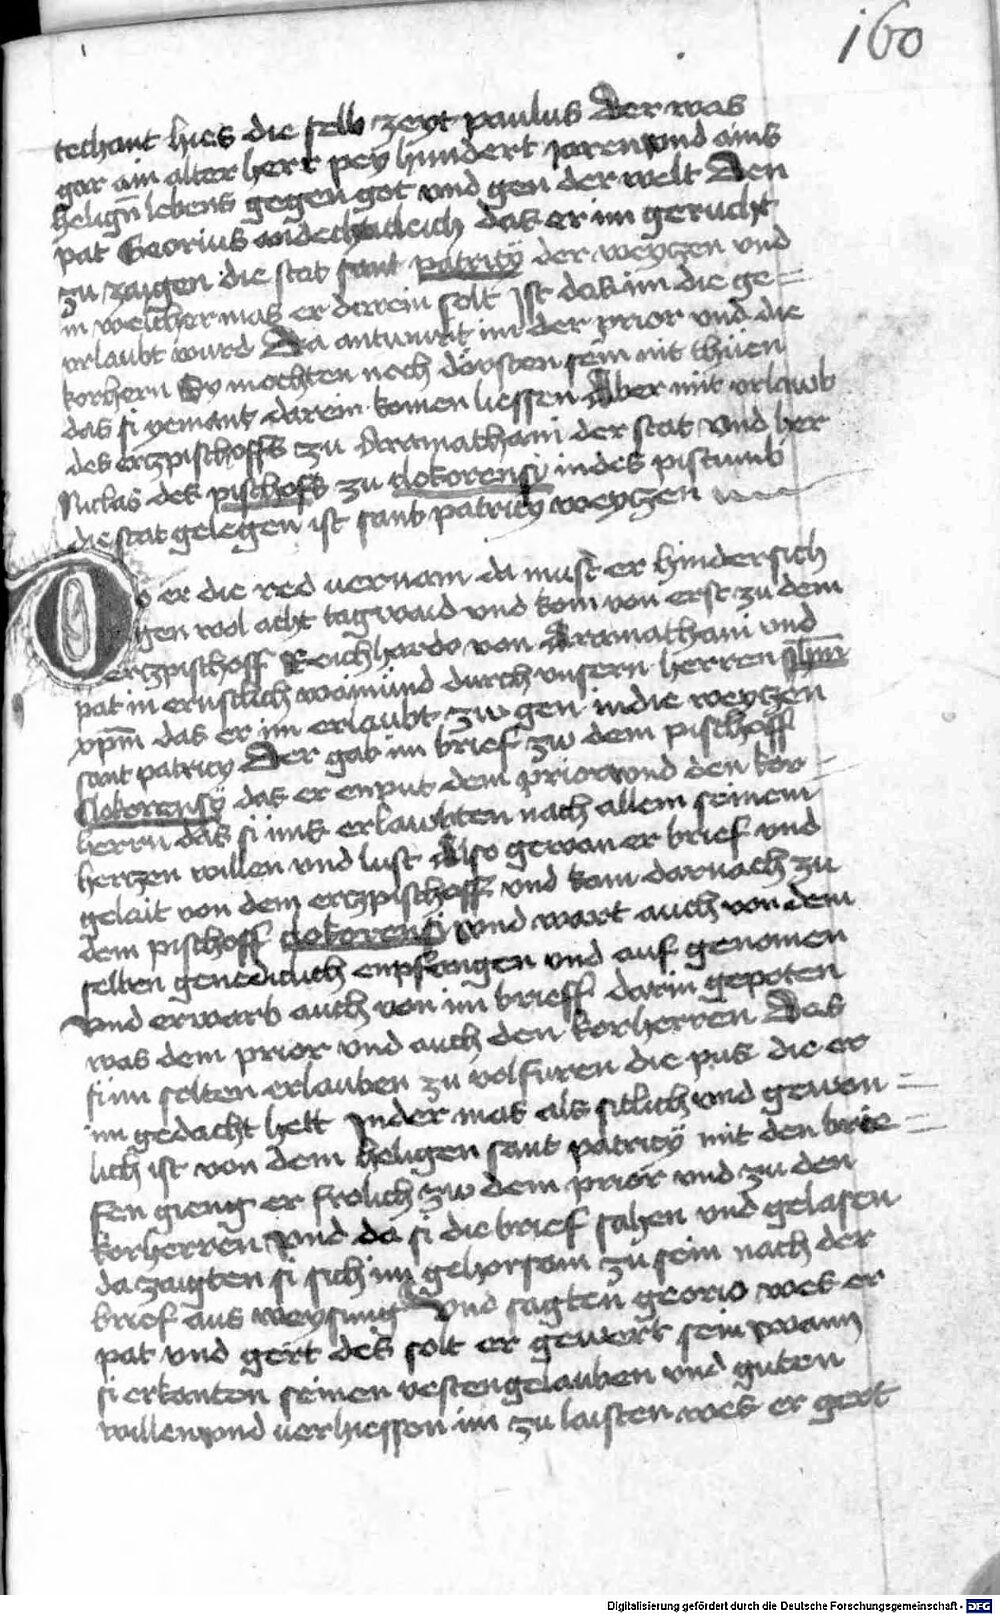 160
techant hies die selb zeyt paulus Der was
gar ain alter herr pey hundert jaren und ains
heligen lebens gegen got und gen der welt Den
pat Georius andechticleich das er im gerucht
zu zaigen die stat sant patricy der weyczen und
in welicher mas er darein solt Ist das im die ge=
urlaubt wurd Da antwurt im der prior und die
korhern Sy mochten noch dörsten sein nit thüen
das si yemants darein komen liessen Aber mit urlawb
des erczpischoffs zu Aramathani der stat Und her
Niclas des pischofs zu clokorensi in des pistumb
die stat gelegen ist sant patricy weyczen
Do er die red vernam da must er hindersich
gen wol acht tagwaid und kom von erst zu dem
erczpischoff Reichhardo von Aramathani und
pat in ernstlich wainund durch unsern herren ihm
xpm das er im erlaubt zw gen in die weyczen
sant patricy Der gab im brief zw dem pischoff
Clokorensy das er enput dem prior und den kor=
herrn das si ims erlawbten nach allem seinem
herczen willen und lust Also gewan er brief und
gelait von dem erczpischoff und kom darnach zu
dem pischoff clokorensi und wart auch von dem
selben genediclich enpfangen und auf genomen
Und erwarb auch von im brieff darin gepoten
was dem prior und auch den korherren Das
si im solten erlauben zu volfuren die pus die er
im gedacht hett In der mas als sitlich und gewon=
lich ist von dem heligen sant patricy mit den brie=
fen gieng er frolich zw dem prior und zu den
korherren Und da si die brief sahen und gelasen
da zaigten si sich im gehorsam zu sein nach der
brief aus weysung Und sagten georio wes er
pat und gert des solt er gewert sein wann
si erkanten seinen vesten gelauben und guten
willen und verhiessen im zu laisten wes er gert
Digitalisierung gefördert durch die Deutsche Forschungsgemeinschaft - DFG